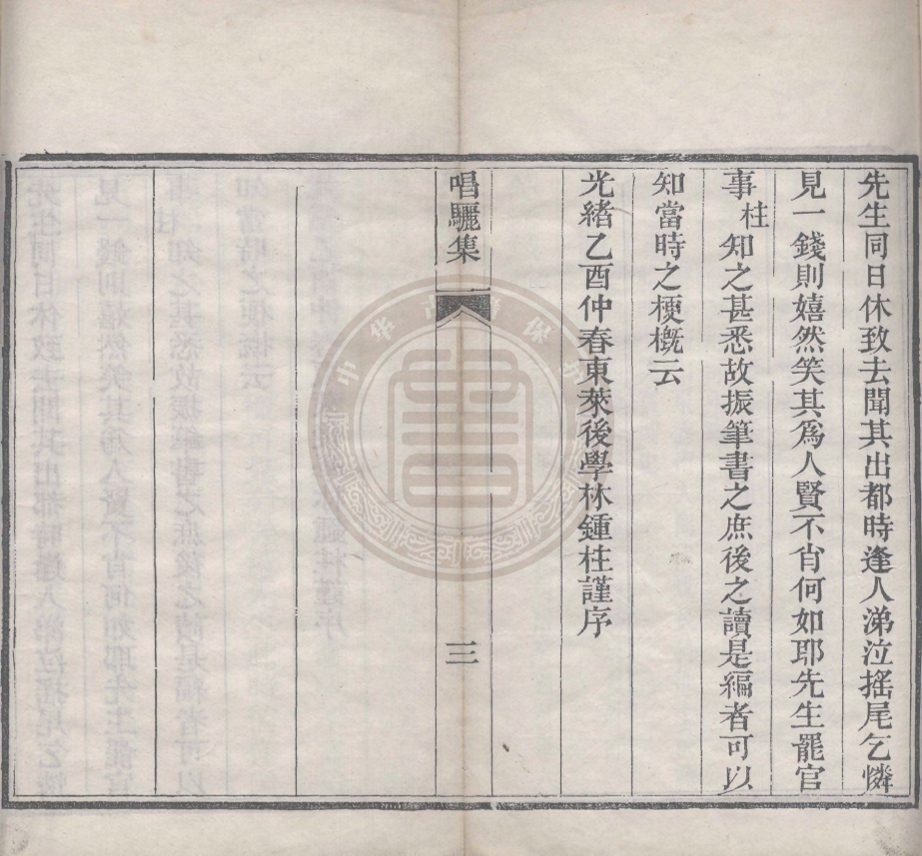 先生同日休致去聞其出都時逢人涕泣搖尾乞憐
見一錢則嬉然笑其爲人賢不肖何如耶先生罷官
事柱知之甚悉故振筆書之庶後之讀是編者可以
知當時之梗概云
光緒乙酉仲春東萊後學林鍾柱謹序
唱驪集
三